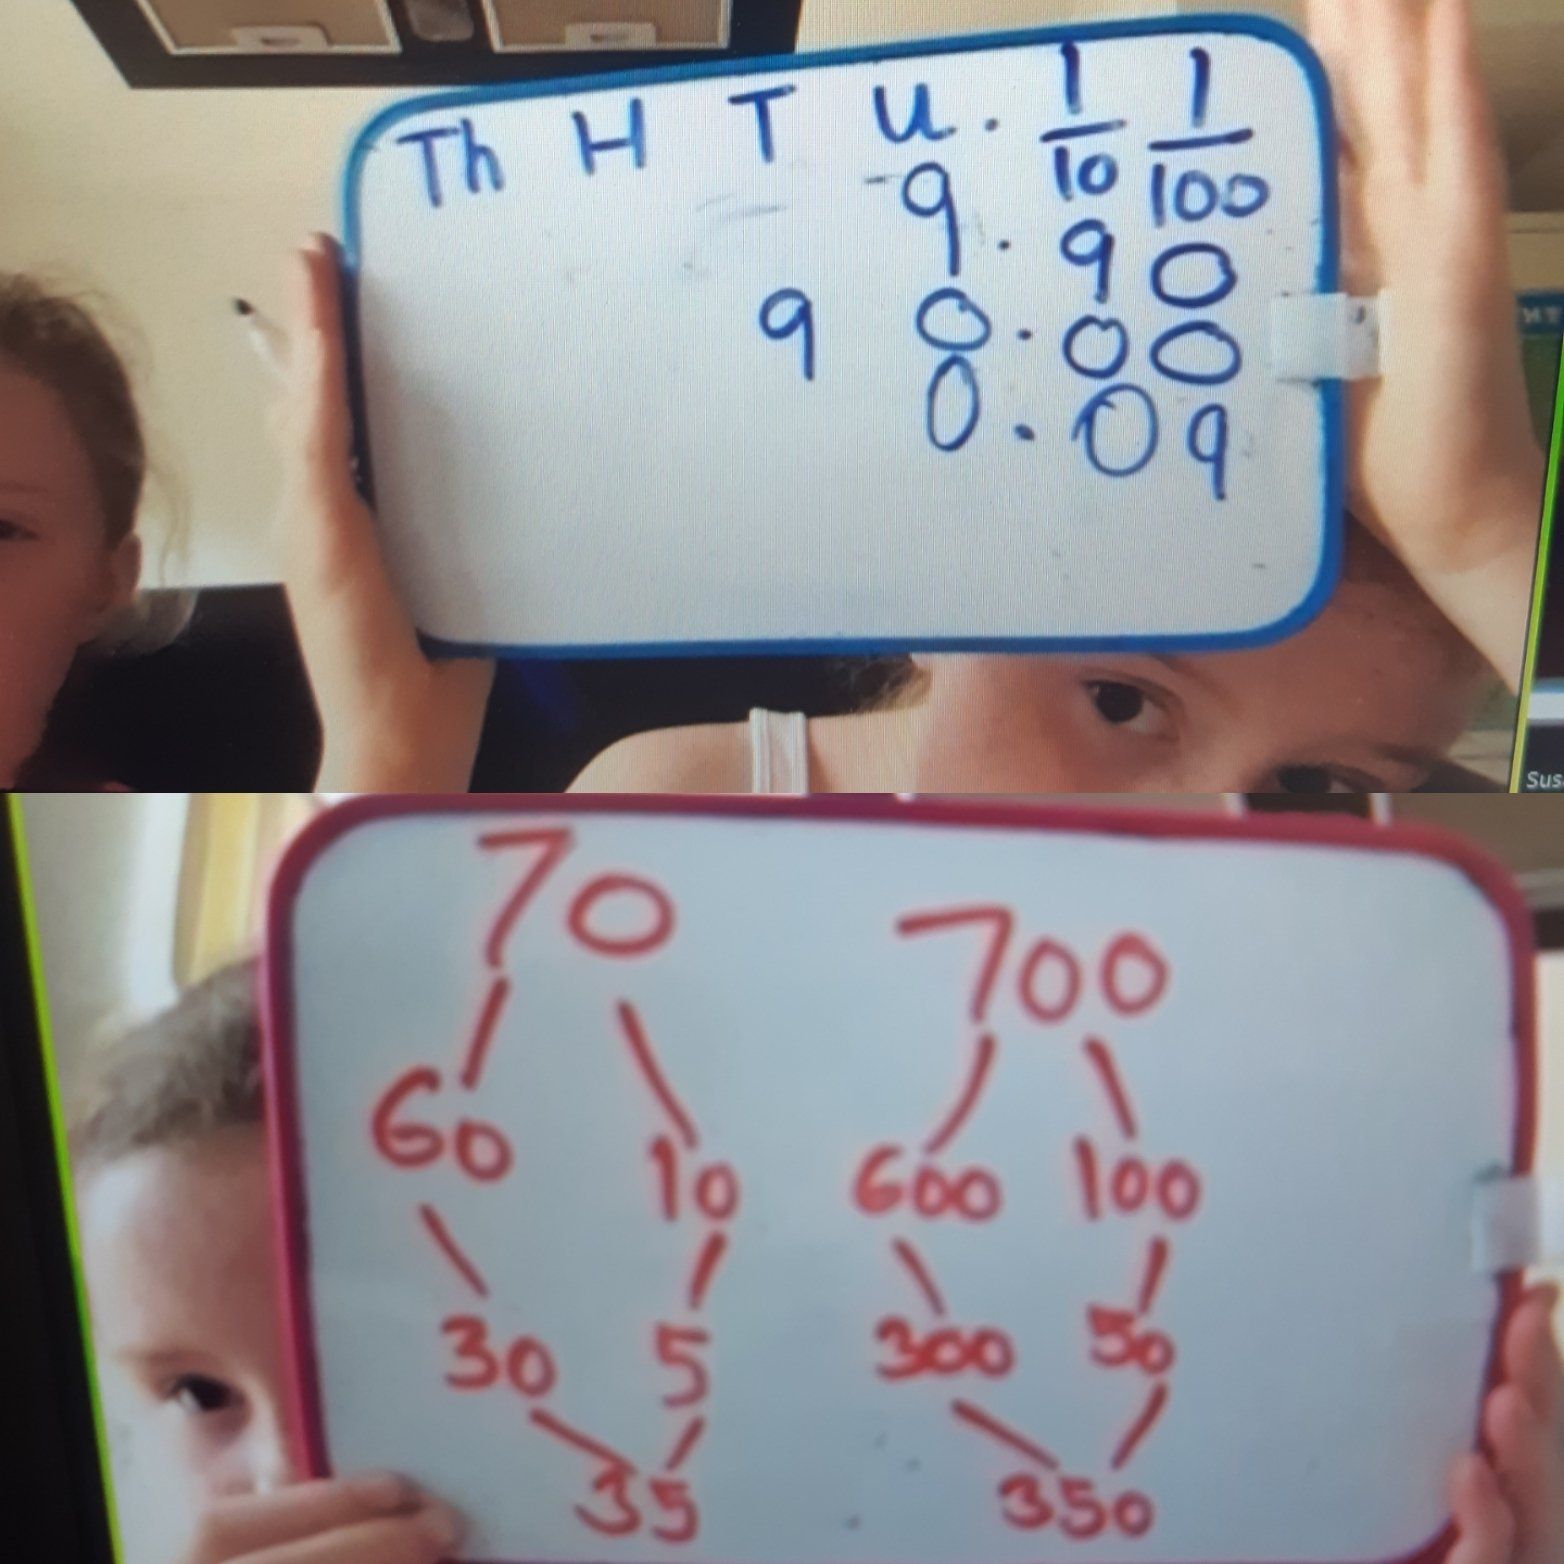 Th H T U . 1/10 1/100
9 . 9 0
9 0 . 0 0
0 . 0 9
Sus
70 700
60 10 600 100
30 5 300 50
35 350